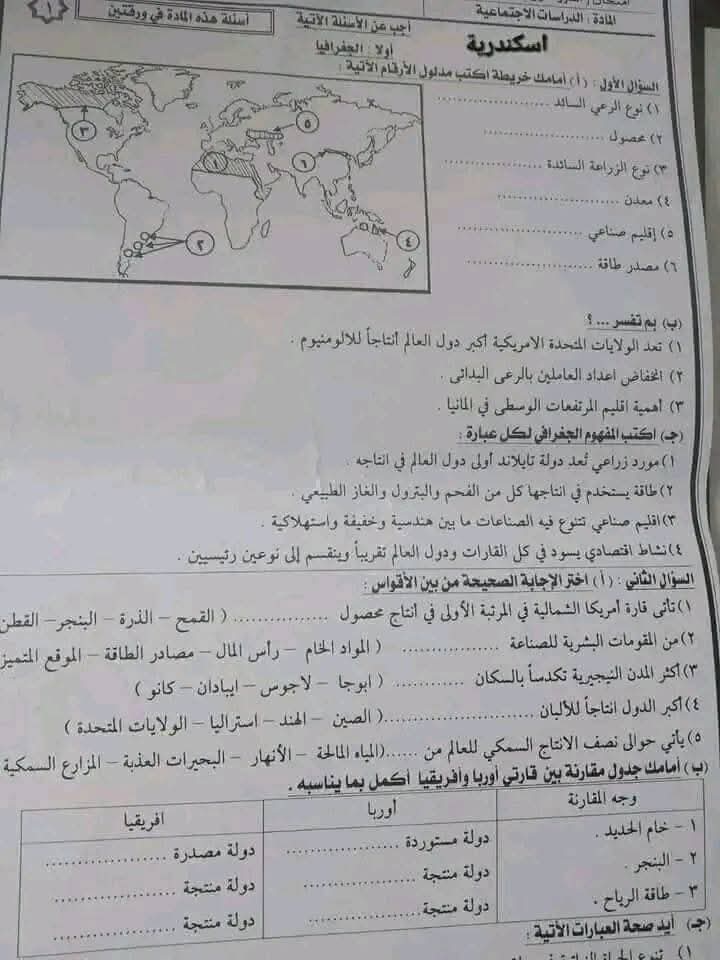 المادة : الدراسات الاجتماعية
أجب عن الأسئلة الآتية
أسئلة هذه المادة في ورقتين
١
اسكندرية
أولا : الجغرافيا
السؤال الأول : ( أ ) أمامك خريطة اكتب مدلول الأرقام الآتية :
١) نوع الرعي السائد ....................
٢) محصول ....................
٣) نوع الزراعة السائدة ....................
٤) معدن ....................
٥) إقليم صناعي ....................
٦) مصدر طاقة ....................
٣
٥
١
٦
٢
٤
(ب) بم تفسر ... ؟
١) تعد الولايات المتحدة الامريكية أكبر دول العالم أنتاجاً للالومنيوم .
٢) انخفاض اعداد العاملين بالرعى البدائى .
٣) أهمية اقليم المرتفعات الوسطى في المانيا .
(جـ) اكتب المفهوم الجغرافي لكل عبارة :
١) مورد زراعي تُعد دولة تايلاند أولى دول العالم في انتاجه .
٢) طاقة يستخدم في انتاجها كل من الفحم والبترول والغاز الطبيعي .
٣) اقليم صناعي تتنوع فيه الصناعات ما بين هندسية وخفيفة واستهلاكية .
٤) نشاط اقتصادي يسود في كل القارات ودول العالم تقريباً وينقسم إلى نوعين رئيسيين .
السؤال الثاني : ( أ ) اختر الإجابة الصحيحة من بين الأقواس :
١) تأتى قارة أمريكا الشمالية في المرتبة الأولى في أنتاج محصول ................ ( القمح – الذرة – البنجر – القطن
٢) من المقومات البشرية للصناعة ................ ( المواد الخام – رأس المال – مصادر الطاقة – الموقع المتميز
٣) أكثر المدن النيجيرية تكدساً بالسكان ............ ( ابوجا – لاجوس – ايبادان – كانو )
٤) أكبر الدول انتاجاً للألبان ....................( الصين – الهند – استراليا – الولايات المتحدة )
٥) يأتي حوالى نصف الانتاج السمكي للعالم من ......(المياه المالحة – الأنهار – البحيرات العذبة – المزارع السمكية
(ب) أمامك جدول مقارنة بين قارتي أوربا وأفريقيا أكمل بما يناسبه .
وجه المقارنة أوربا افريقيا
١ – خام الحديد . دولة مستوردة .................... دولة مصدرة ....................
٢ – البنجر . دولة منتجة .................... دولة منتجة ....................
٣ – طاقة الرياح . دولة منتجة.................... دولة منتجة ....................
(جـ) أيد صحة العبارات الأتية :